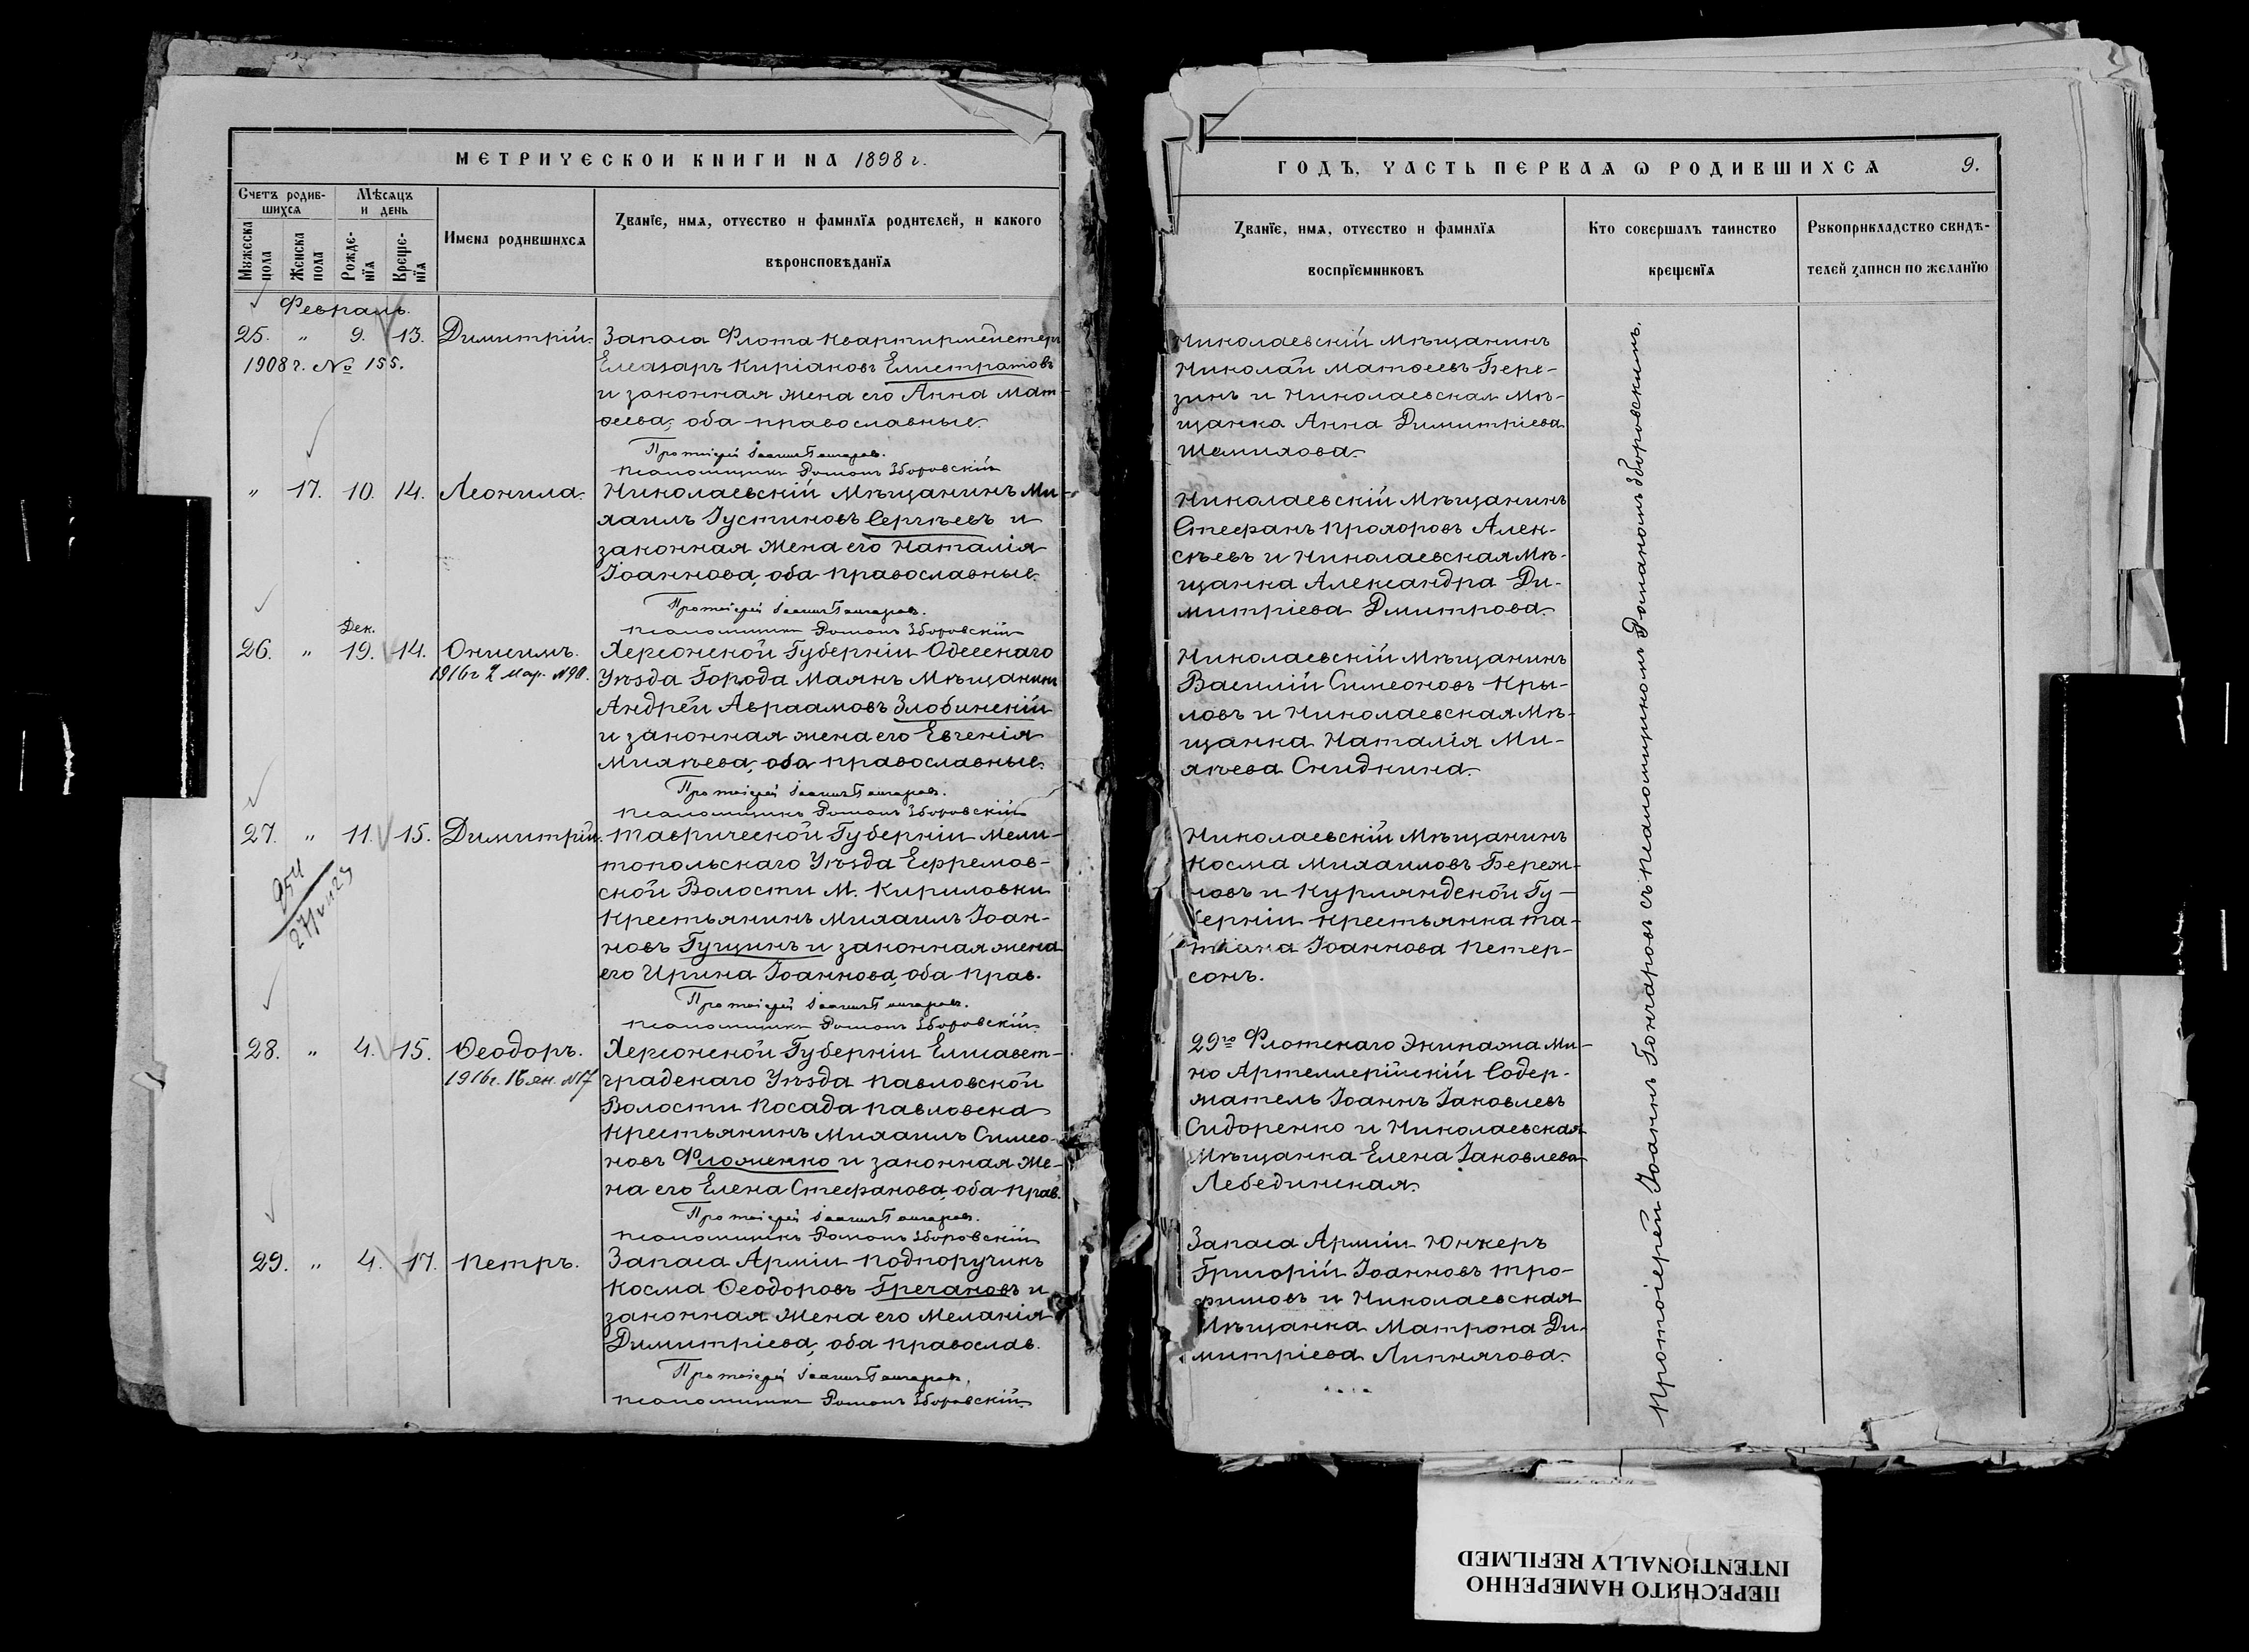 МЕТРИЧЕСКОИ КНИГИ НА 1898 г.
Счетъ родив-
шихся
Мѣсяцъ
и день
Мужеска
пола
Женска
пола
Рожде-
нїя
Креще-
нїя
Имена родившихся
Званїе, имя, отчество и фамилїя родителей, и какого
вѣроисповѣданїя
Февраль.
25. " 9. 13. Димитрій. Запаса Флота Квартирмейстеръ
1908 г. № 155. Елеазаръ Киріаковъ Елистратовъ
и законная жена его Анна Мат-
ѳеева, оба православные.
Протоіерей Іоаннъ Гончаровъ.
Псаломщикъ Романъ Зборовскій
" 17. 10. 14. Леонила. Николаевскій Мѣщанинъ Ми-
хаилъ Іустиновъ Сергѣевъ и
законная Жена его Наталія
Іоаннова, оба православные.
Протоіерей Іоаннъ Гончаровъ.
Псаломщикъ Романъ Зборовскій
Дек.
26. " 19. 14. Онисимъ. Херсонской Губерніи Одесскаго
1916 г. 2 Мар. №90. Уѣзда Города Маякъ Мѣщанинъ
Андрей Авраамовъ Злобинскій
и законная жена его Евгенія
Михѣева, оба православные.
Протоіерей Іоаннъ Гончаровъ.
Псаломщикъ Романъ Зборовскій
27. " 11. 15. Димитрій. Таврической Губерніи Мели-
топольскаго Уѣзда Ефремов-
ской Волости М. Кириловки
Крестьянинъ Михаилъ Іоан-
новъ Гущинъ и законная жена
его Ирина Іоаннова, оба прав.
Протоіерей Іоаннъ Гончаровъ.
Псаломщикъ Романъ Зборовскій.
28. " 4. 15. Ѳеодоръ. Херсонской Губерніи Елисавет-
1916 г. 16 ян. №17 градскаго Уѣзда Павловской
Волости Посада Павловска
Крестьянинъ Михаилъ Симео-
новъ Фломенко и законная Же-
на его Елена Стефанова, оба прав.
Протоіерей Іоаннъ Гончаровъ.
Псаломщикъ Романъ Зборовскій
29. " 4. 17. Петръ. Запаса Арміи Подпоручикъ
Косма Ѳеодоровъ Гречановъ и
законная Жена его Меланія
Димитріева, оба православ.
Протоіерей Іоаннъ Гончаровъ.
Псаломщикъ Романъ Зборовскій.
ГОДЪ, ЧАСТЬ ПЕРВАЯ Ѡ РОДИВШИХСЯ 9.
Званїе, имя, отчество и фамилїя
воспрїемниковъ
Кто совершалъ таинство
крещенїя
Рукоприкладство свидѣ-
телей записи по желанїю
Николаевскій Мѣщанинъ
Николай Матѳеевъ Бере-
зинъ и Николаевская Мѣ-
щанка Анна Димитріева
Шемилова.
Николаевскій Мѣщанинъ
Стефанъ Прохоровъ Алек-
сѣевъ и Николаевская Мѣ-
щанка Александра Ди-
митріева Дмитрова.
Николаевскій Мѣщанинъ
Василій Симеоновъ Кры-
ловъ и Николаевская Мѣ-
щанка Наталія Ми-
хѣева Снидкина.
Николаевскій Мѣщанинъ
Косма Михаиловъ Береж-
новъ и Курляндской Гу-
берніи крестьянка Та-
тіана Іоаннова Петер-
сонъ.
29го Флотскаго Экипажа Ми-
но Артеллерійскій Содер-
жатель Іоаннъ Іаковлевъ
Сидоренко и Николаевская
Мѣщанка Елена Іаковлева
Лебединская.
Запаса Арміи Юнкеръ
Григорій Іоанновъ Тро-
фимовъ и Николаевская
Мѣщанка Матрона Ди-
митріева Липнягова.
Протоіерей Іоаннъ Гончаровъ съ псаломщикомъ Романомъ Зборовскимъ.
ПЕРЕСНЯТО НАМЕРЕННО
INTENTIONALLY REFILMED